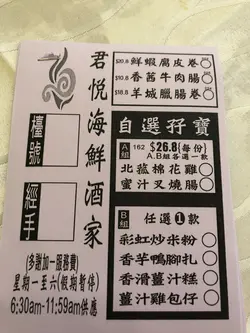 君悅海鮮酒家
$20.8 鮮蝦腐皮卷
$10.8 香茜牛肉腸
$18.8 羊城臘腸卷
檯號
經手
(多謝加一服務費)
星期一至六(假期暫停)
6:30am-11:59am供應
自選孖寶
A組 162 $26.8(每份)
A.B組各選一款
北菰棉花雞
蜜汁叉燒腸
B組 任選1款
彩虹炒米粉
香芋鴨腳扎
香滑薑汁糕
薑汁雞包仔